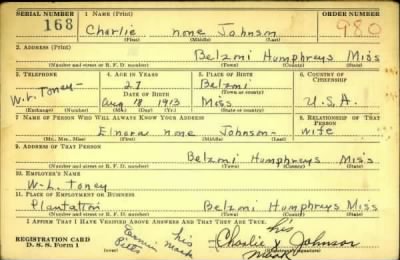 SERIAL NUMBER 1. NAME (Print) ORDER NUMBER
168 Charlie none Johnson 980
(First) (Middle) (Last)
2. ADDRESS (Print)
Belzoni Humphreys Miss
(Number and street or R. F. D. number) (Town) (County) (State)
3. TELEPHONE 4. AGE IN YEARS 5. PLACE OF BIRTH 6. COUNTRY OF CITIZENSHIP
W. L. Toney 27 Belzoni
DATE OF BIRTH (Town or county)
Aug 18 1913 Miss U.S.A.
(Exchange) (Number) (Mo.) (Day) (Yr.) (State or country)
7. NAME OF PERSON WHO WILL ALWAYS KNOW YOUR ADDRESS 8. RELATIONSHIP OF THAT PERSON
Elnora none Johnson wife
(Mr., Mrs., Miss) (First) (Middle) (Last)
9. ADDRESS OF THAT PERSON
Belzoni Humphreys Miss
(Number and street or R. F. D. number) (Town) (County) (State)
10. EMPLOYER'S NAME
W-L. Toney
11. PLACE OF EMPLOYMENT OR BUSINESS
Plantation Belzoni Humphreys Miss
(Number and street or R. F. D. number) (Town) (County) (State)
I AFFIRM THAT I HAVE VERIFIED ABOVE ANSWERS AND THAT THEY ARE TRUE.
REGISTRATION CARD
D. S. S. Form 1
his
mark
his
Charlie x Johnson
mark